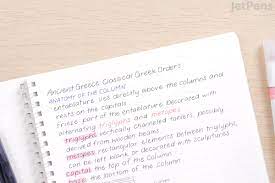 JetPens
Ancient Greece: Classical Greek Orders
ANATOMY OF THE COLUMN
entablature: lies directly above the columns and
rests on the capitals
frieze: part of the entablature. Decorated with
alternating triglyphs and metopes
triglyphs: vertically channeled tablets, possibly
derived from wooden beams
metopes: rectangular elements between triglyphs,
can be left blank or decorated with sculptures
capital: the top of the column
base: the bottom of the column